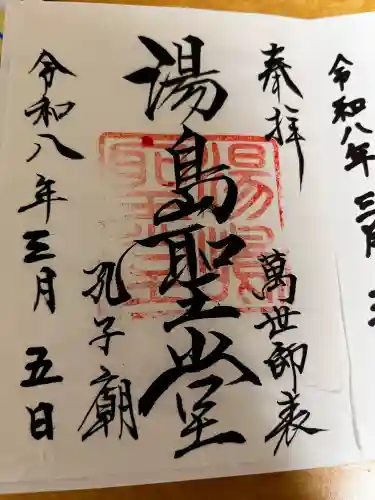 令和八年三月
奉拝
萬世師表
湯島聖堂
孔子廟
令和八年三月五日
湯島聖堂